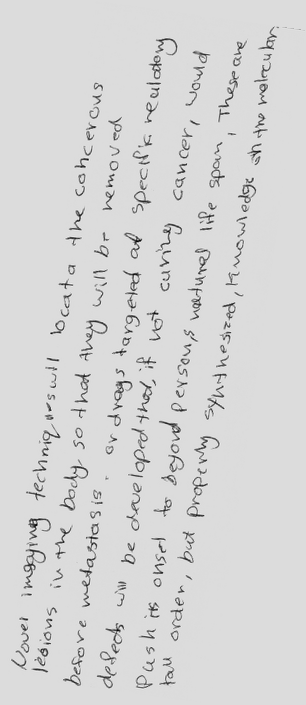 Novel imaging techniques will locata the concerous
lesions in the body so that they will be removed
before metastasis. or drugs targeted at specific regulatory
defects will be developed that, if not curing cancer, would
push its onset to beyond person,s natural life span, These are
tall order, but properly synthesized, knowledge of the molecular